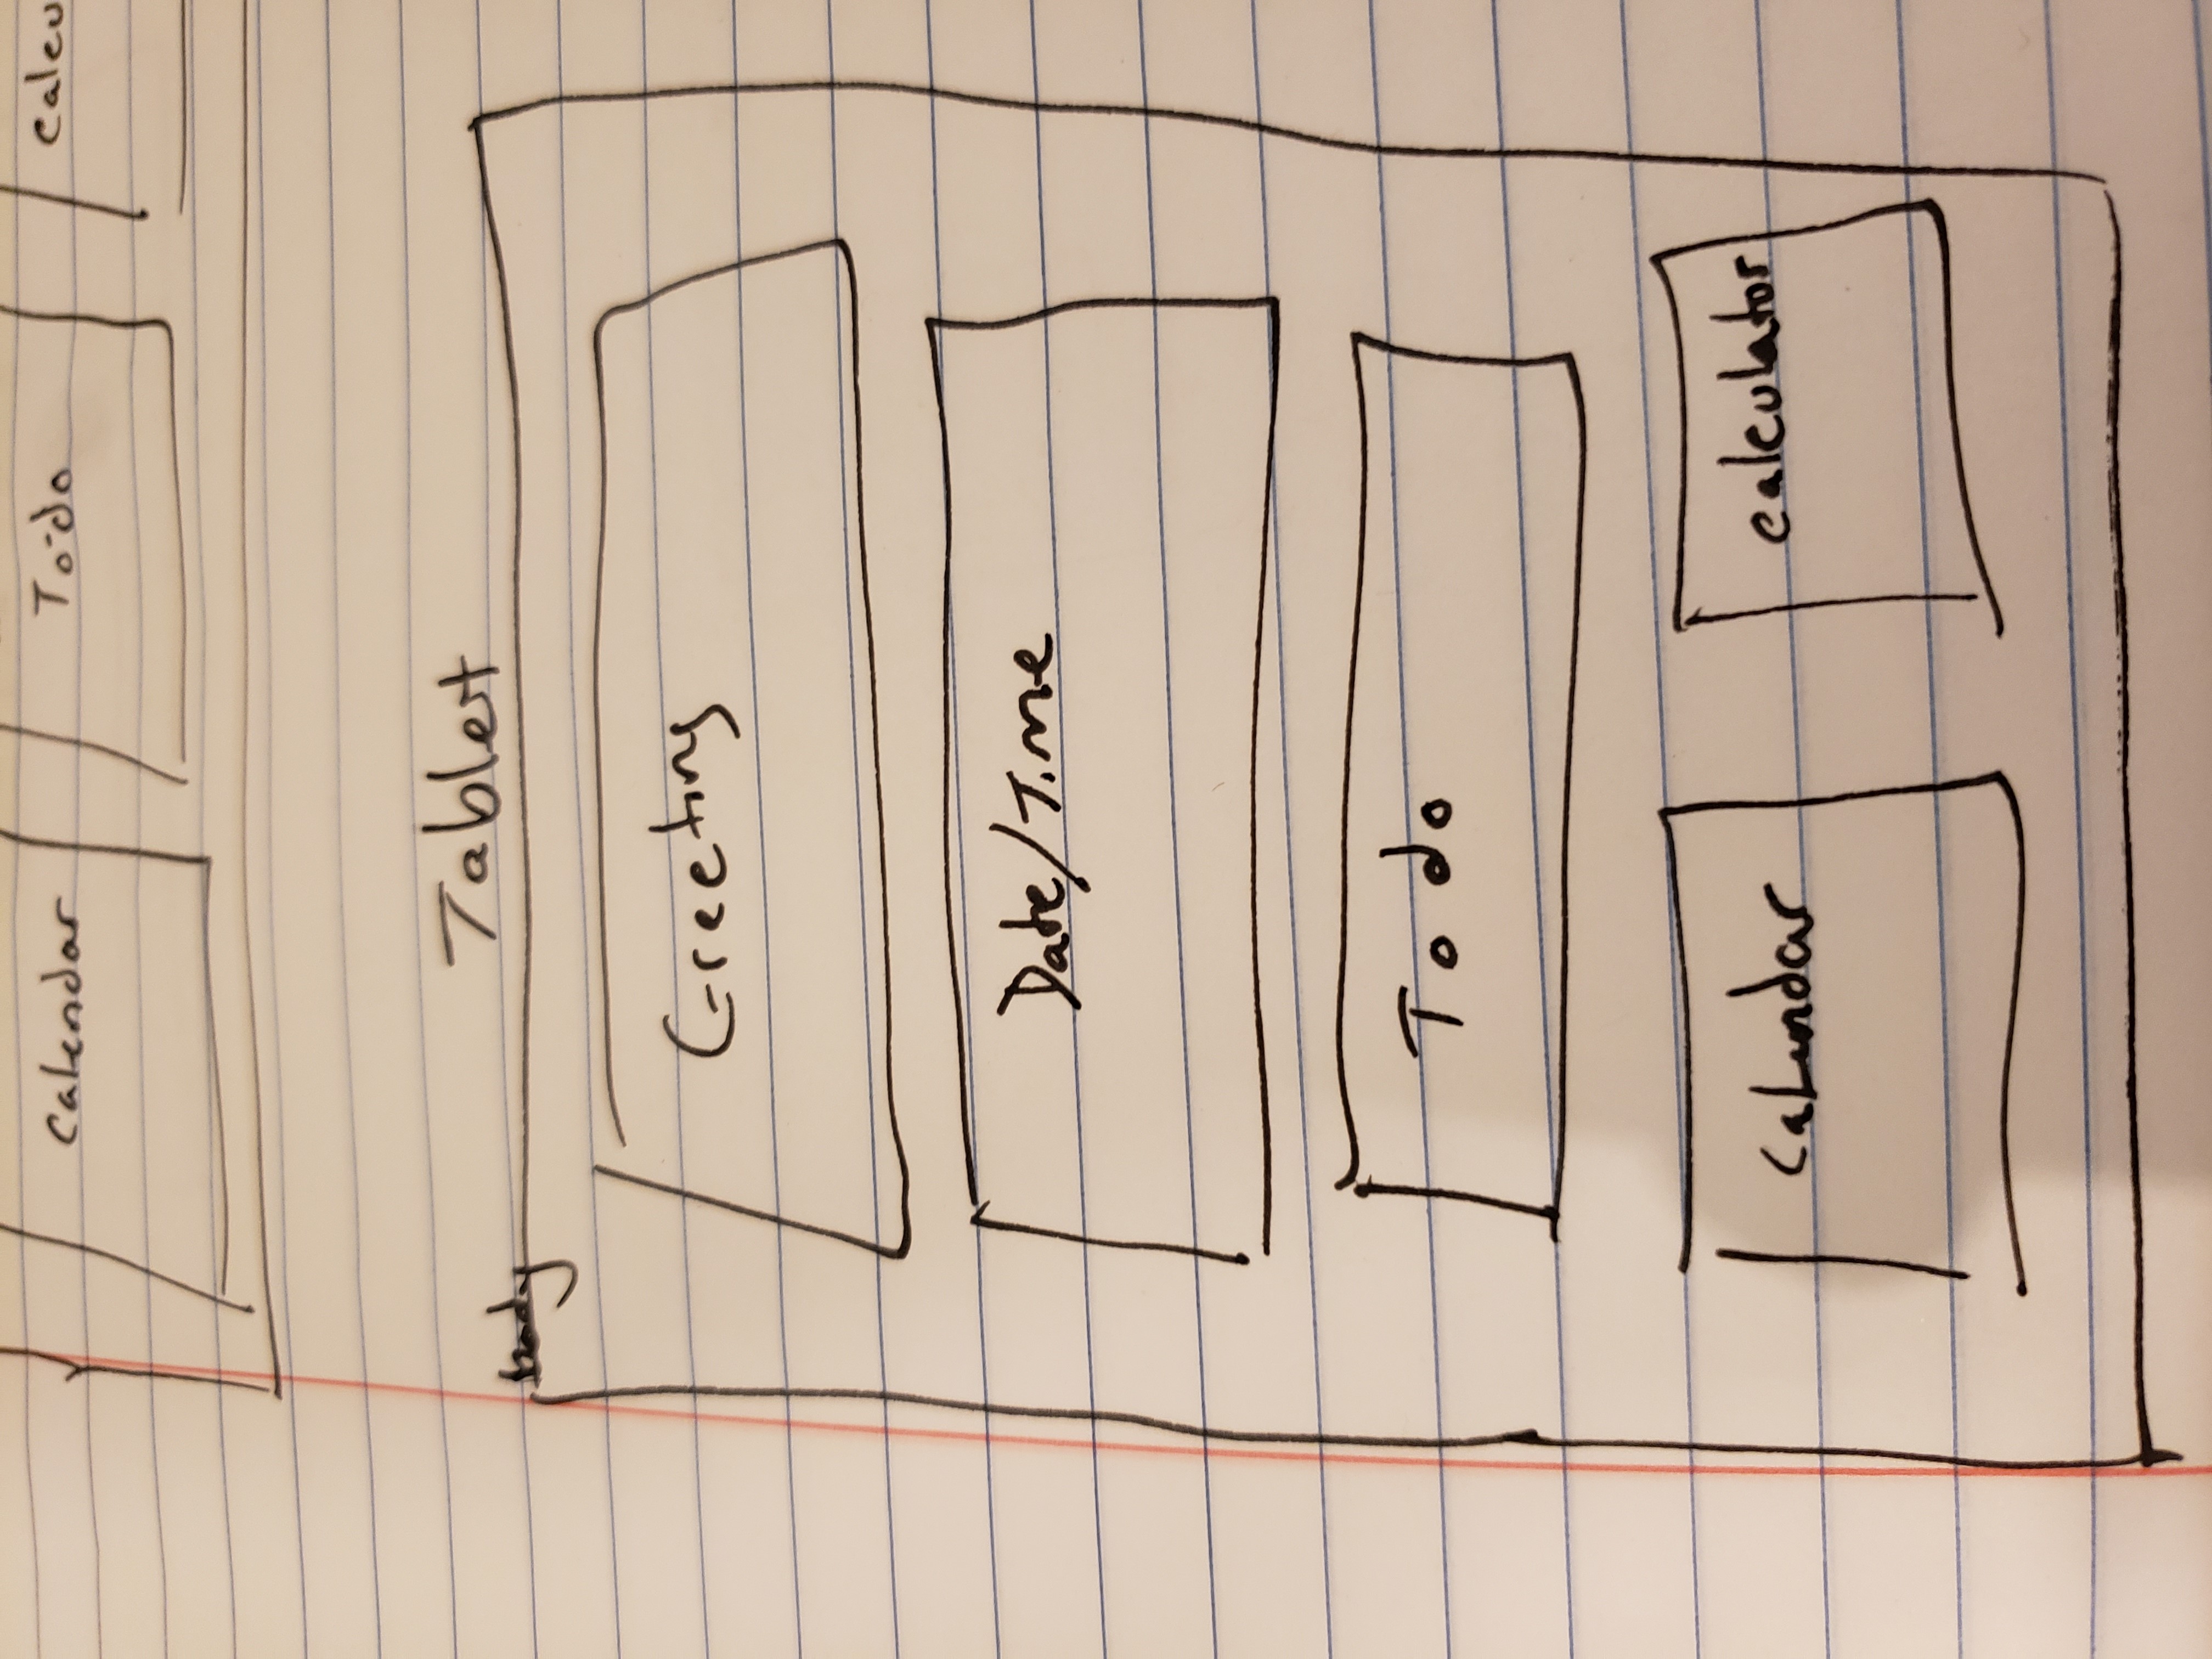 Calendar
To-do
Calcu
Tablet
body
Greeting
Date/Time
To do
Calendar
calculator